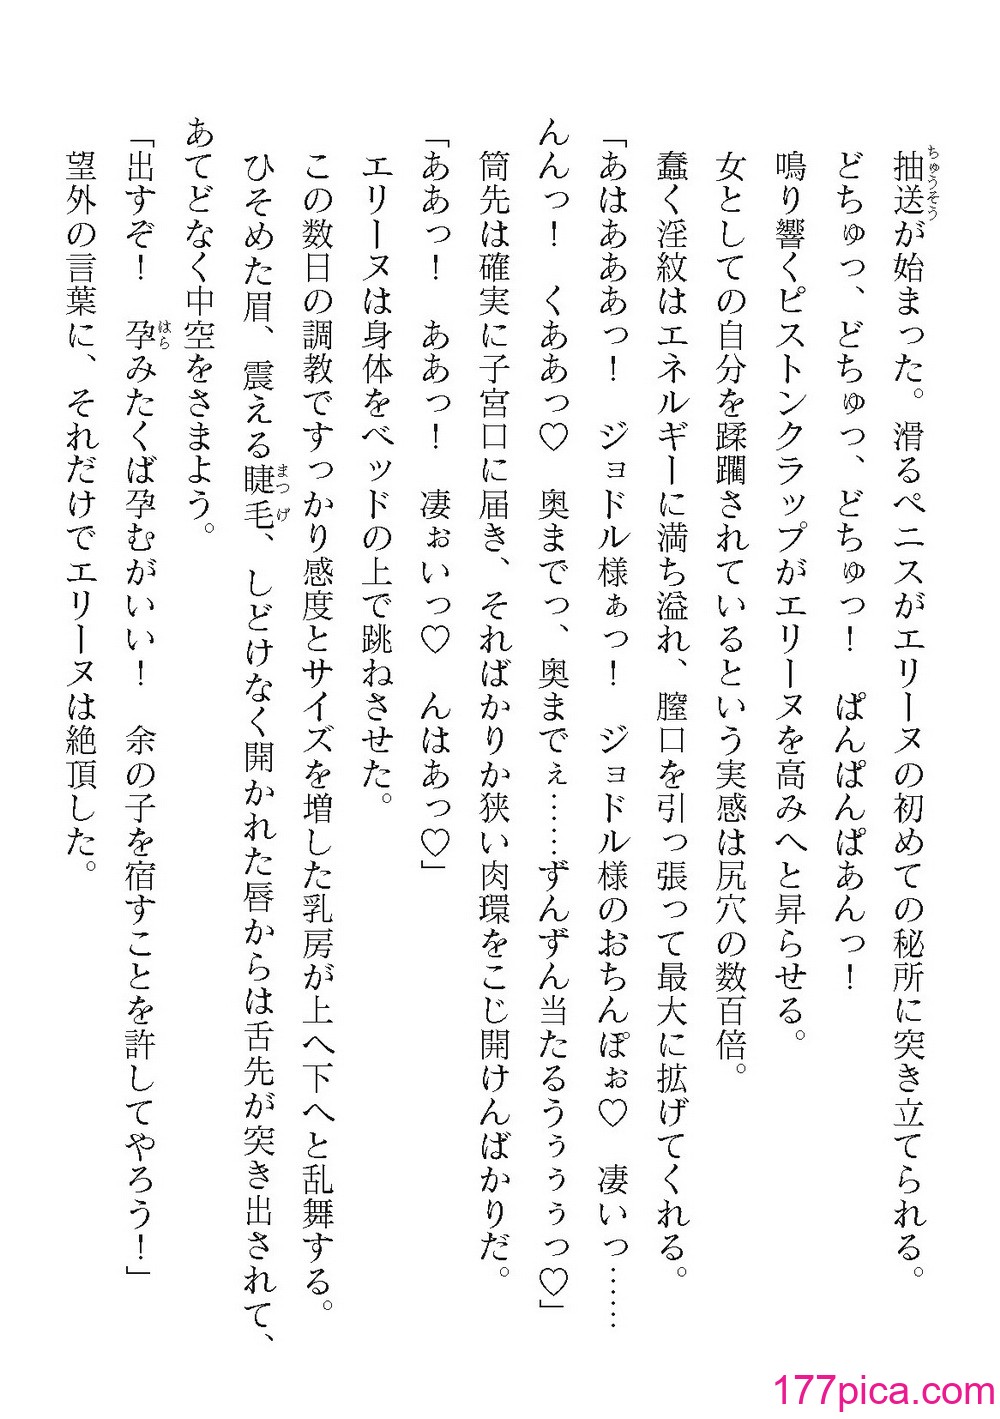 ちゅうそう
抽送が始まった。滑るペニスがエリーヌの初めての秘所に突き立てられる。
どちゅっ、どちゅっ、どちゅっ！　ぱんぱんぱあんっ！
鳴り響くピストンクラップがエリーヌを高みへと昇らせる。
女としての自分を蹂躙されているという実感は尻穴の数百倍。
蠢く淫紋はエネルギーに満ち溢れ、膣口を引っ張って最大に拡げてくれる。
「あはあああっ！　ジョドル様ぁっ！　ジョドル様のおちんぽぉ♡　凄いっ……
んんっ！　くああっ♡　奥までっ、奥までぇ……ずんずん当たるうぅぅぅっ♡」
筒先は確実に子宮口に届き、そればかりか狭い肉環をこじ開けんばかりだ。
「ああっ！　ああっ！　凄ぉいっ♡　んはあっ♡」
エリーヌは身体をベッドの上で跳ねさせた。
この数日の調教ですっかり感度とサイズを増した乳房が上へ下へと乱舞する。
まつげ
ひそめた眉、震える睫毛、しどけなく開かれた唇からは舌先が突き出されて、
あてどなく中空をさまよう。
はら
「出すぞ！　孕みたくば孕むがいい！　余の子を宿すことを許してやろう！」
望外の言葉に、それだけでエリーヌは絶頂した。
177pica.com